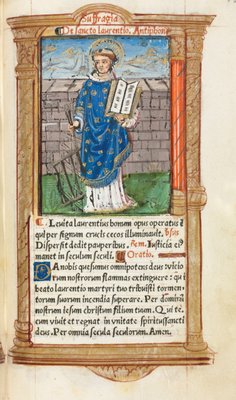 Suffragia
De sancto laurentio. Antiphona
Leuita laurentius bonum opus operatus ē
qui per signum crucis cecos illuminauit. vſus
Diſperſit dedit pauperibus. Rem. Iuſticia eiꝰ
manet in ſeculum ſeculi. Oratio.
DA nobis queſumus omnipotēs deus viciorum
noſtrorum flammas extinguere: qui
beato laurentio martyri tuo tribuiſti tormentorum
ſuorum incendia ſuperare. Per dominū
noſtrum ieſum chriſtum filium tuum. Qui te
cum viuit et regnat in vnitate ſpirituſſancti
deus. Per omnia ſecula ſeculorum. Amen.